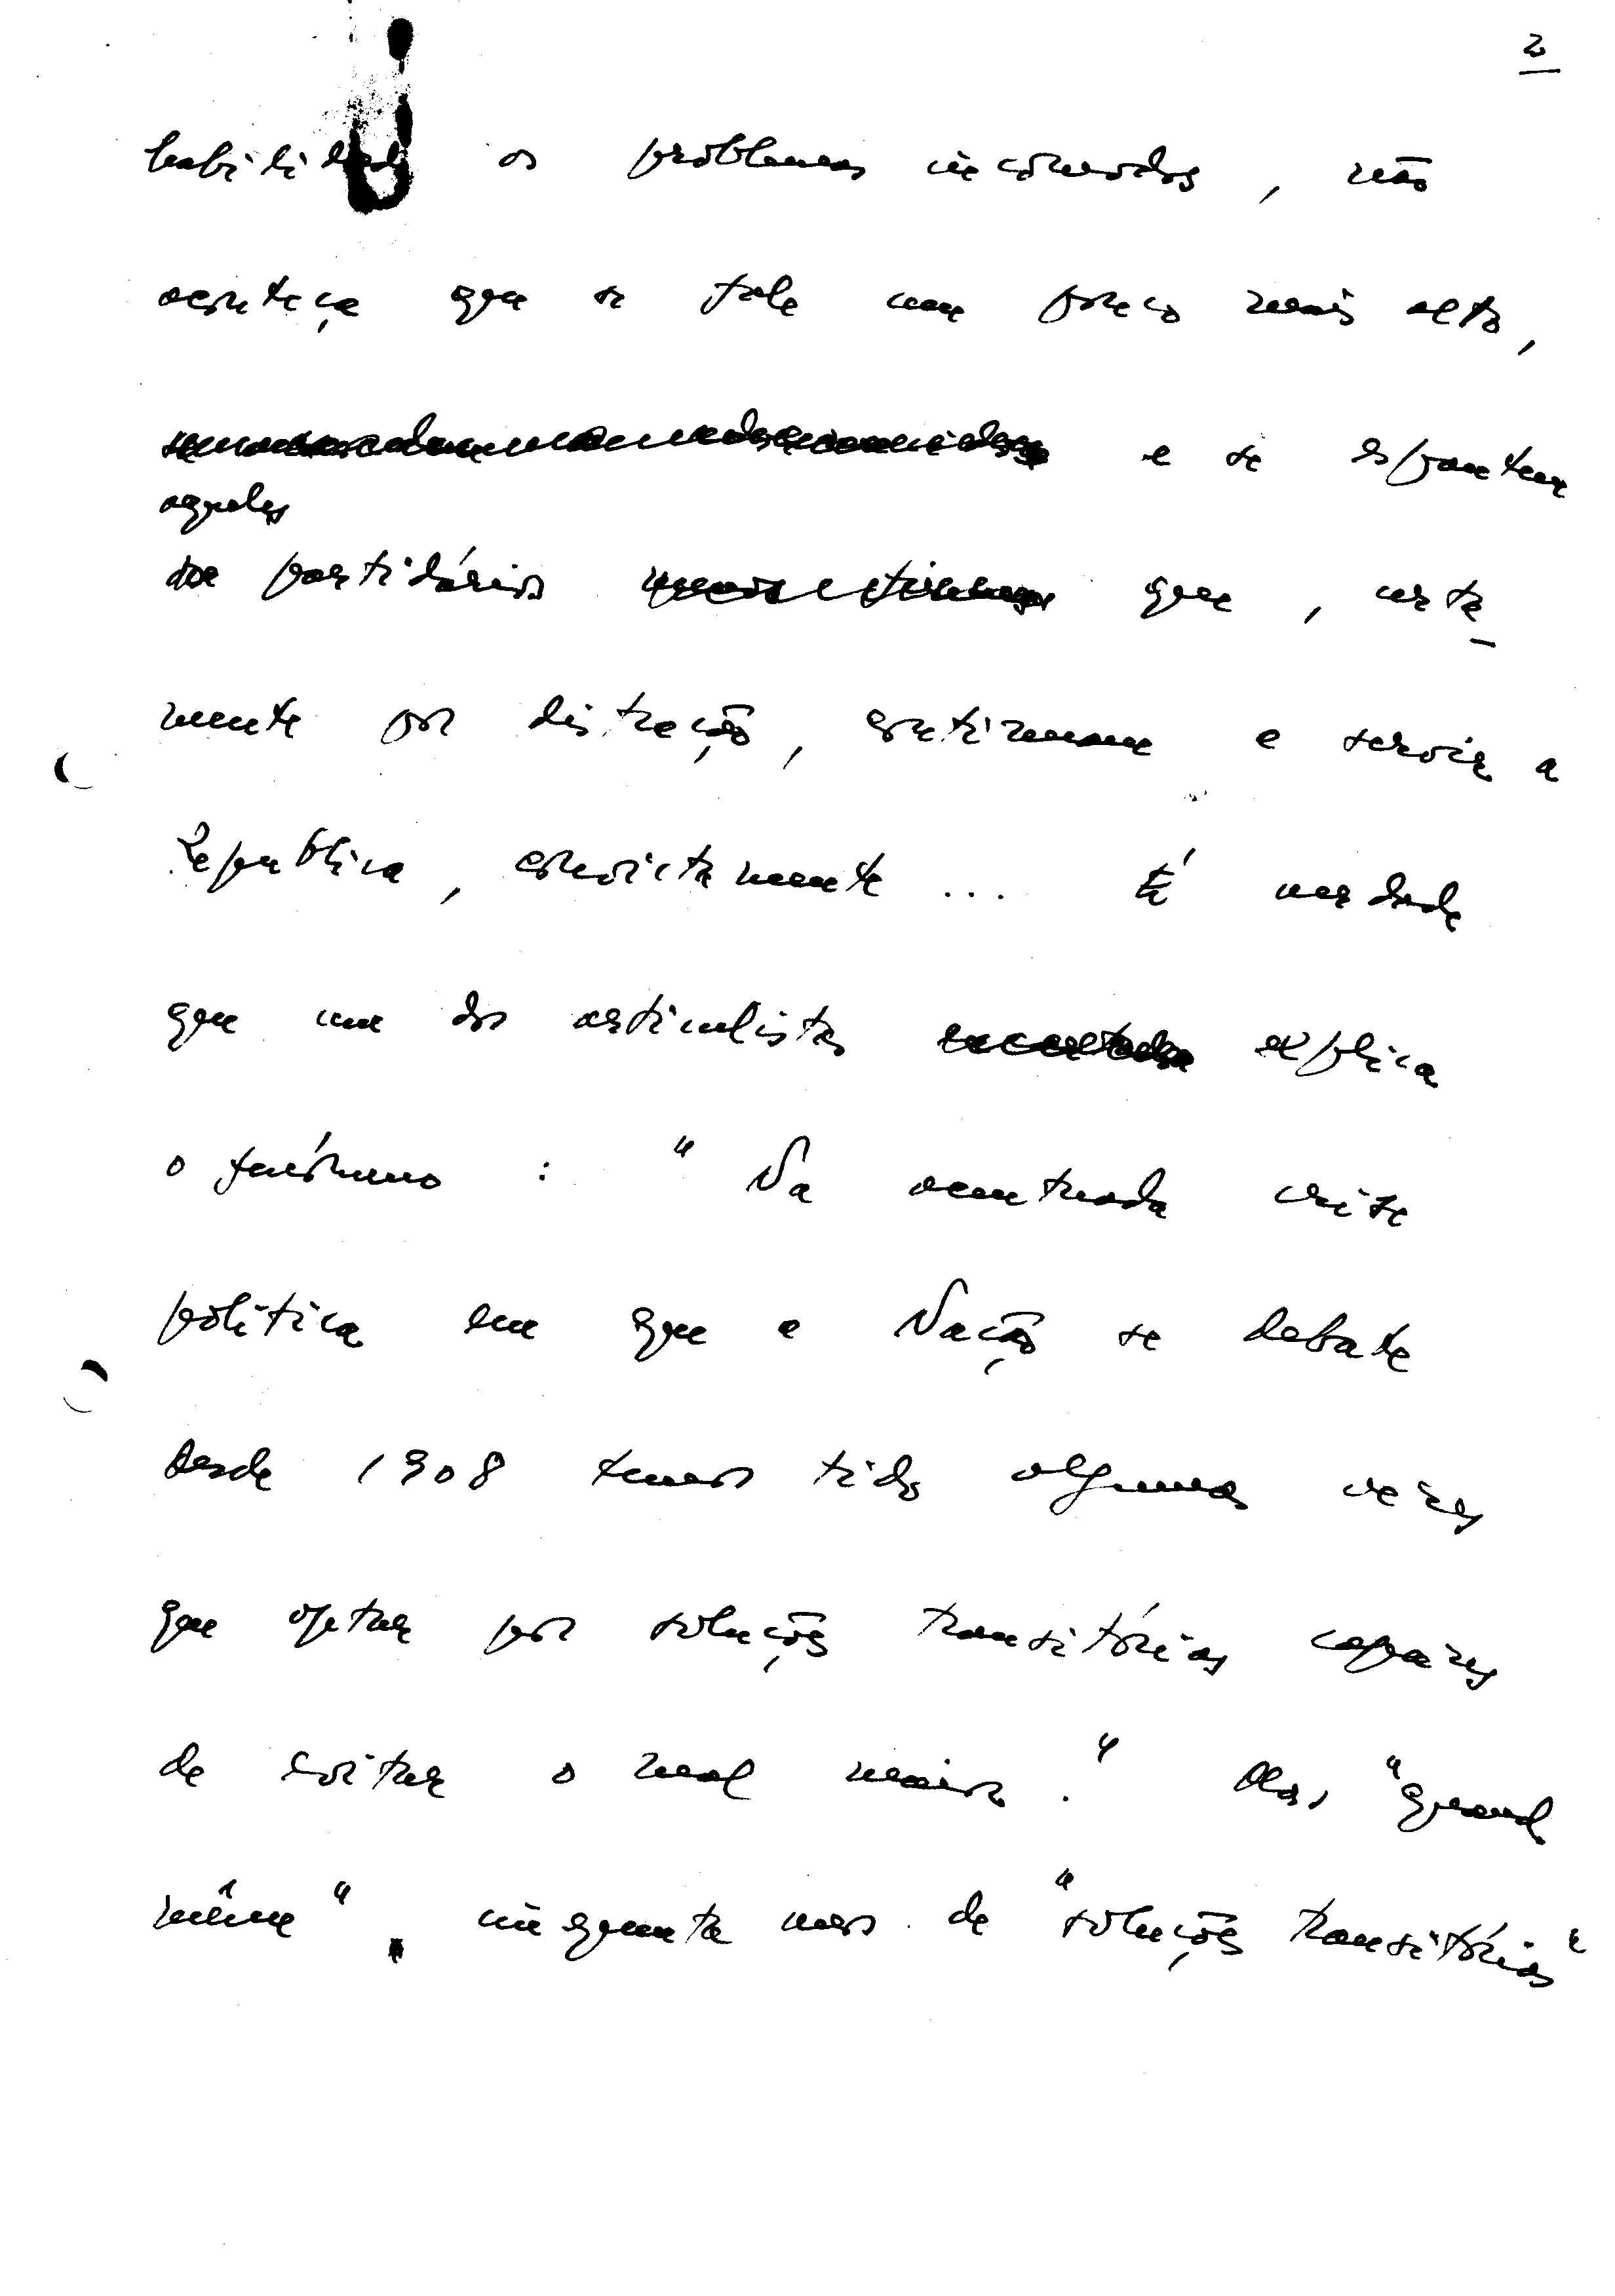 2
habilidade os problemas incómodos, não
aconteça que se fale um pouco mais alto,
e se espantem
aqueles
partidários que, certa-
mente por distração, continuam a servir a
Republica, convictamente... É verdade
que um dos articulistas explica
o fenómeno: "Na acentuada crise
política em que a Nação se debate
desde 1908 temos tido algumas vezes
que optar por soluções transitórias capazes
de evitar o mal maior." Mas, "quand
même", cinquenta anos de "soluções transitórias"